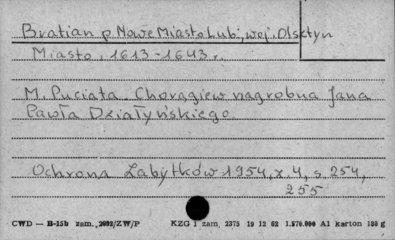 Bratian p. Nowe Miasto Lub., woj. Olsztyn
Miasto, 1613-1643 r.
M. Puciata Chorągiew nagrobna Jana
Pawła Działyńskiego.
Ochrona Zabytków 1954, z. 4, s. 254,
255
CWD — B-15b zam. 2092/ZW/P KZG 1 zam. 2375 19 12 62 1.570.000 A1 karton 155 g